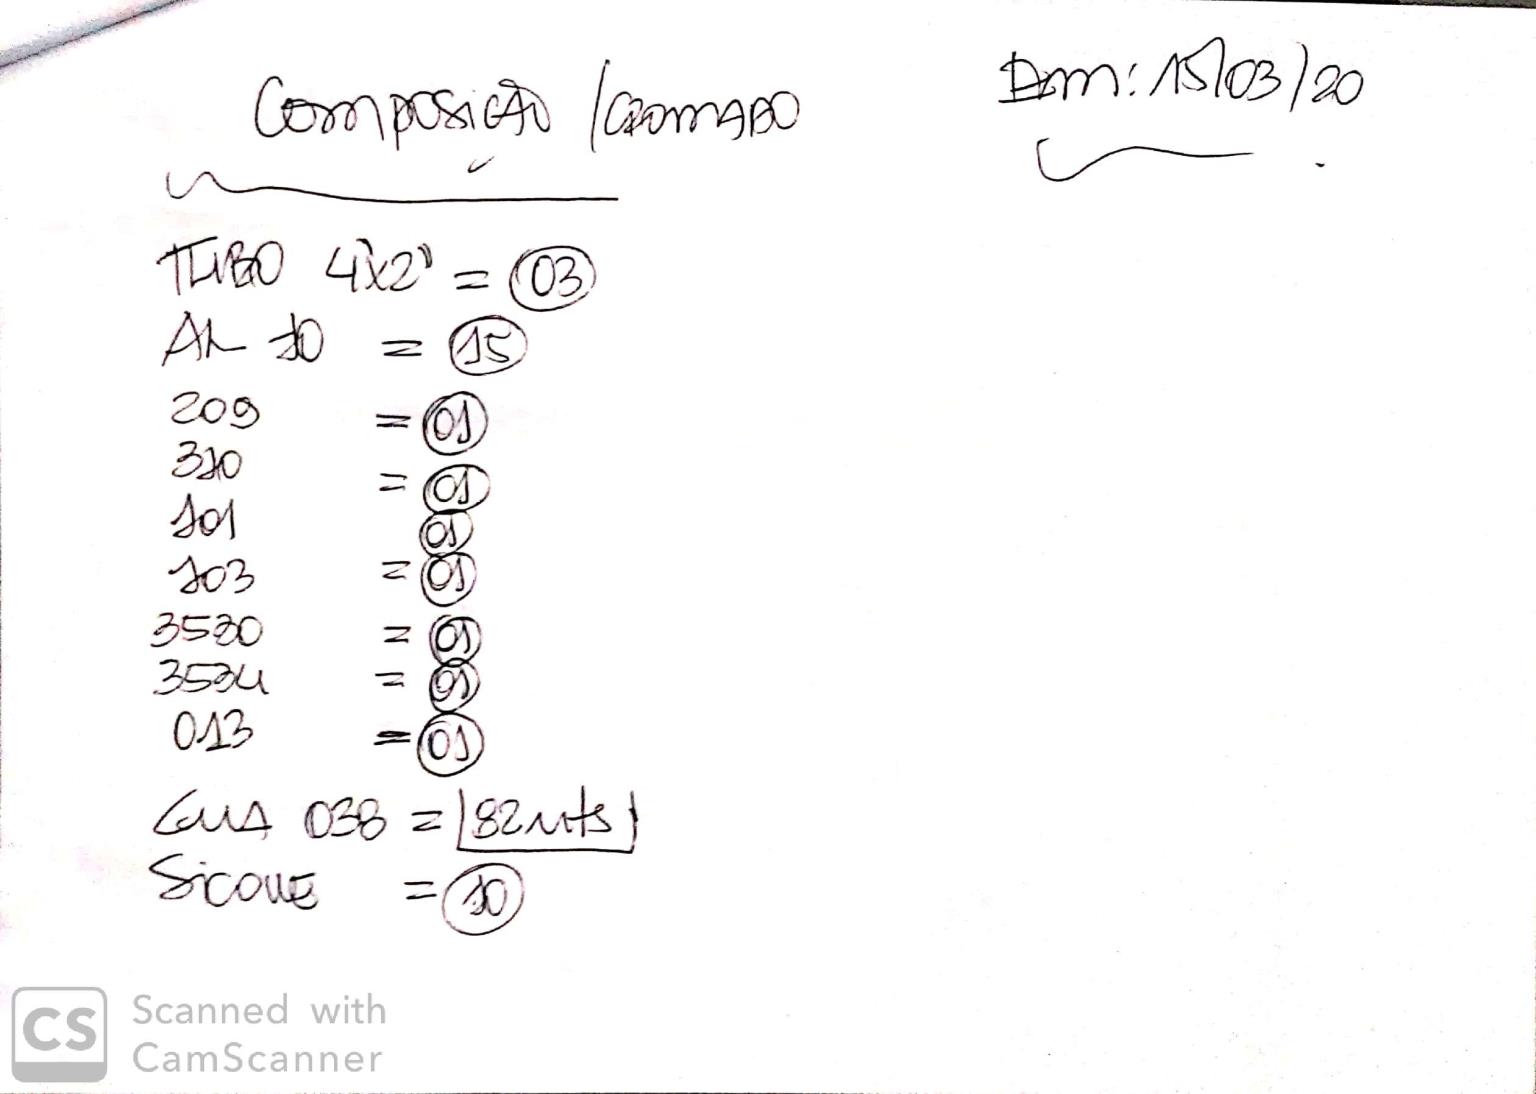 Composição /CROMADO
Dom: 15/03/20
TUBO 4"x2" = 03
AL 10 = 15
209 = 01
310 = 01
101 01
103 = 01
3530 = 01
3534 = 01
013 = 01
GUIA 038 = 82 mts
Sicone = 10
CS Scanned with
CamScanner